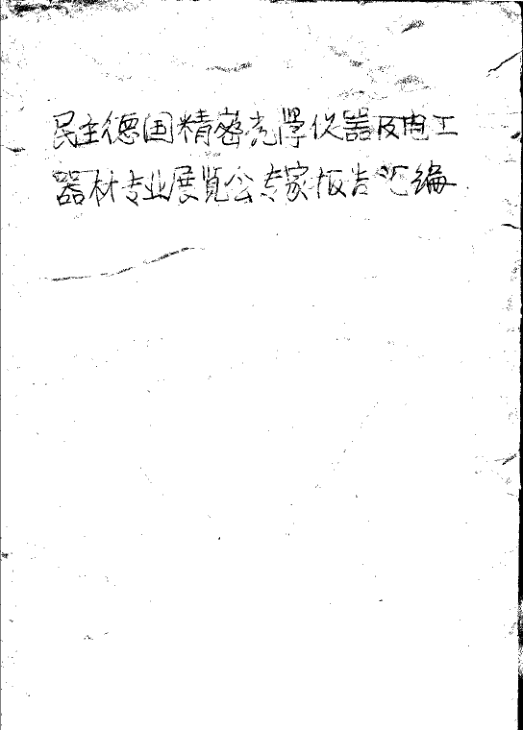 民主德国精密光学仪器及电工
器材专业展览会专家报告汇编